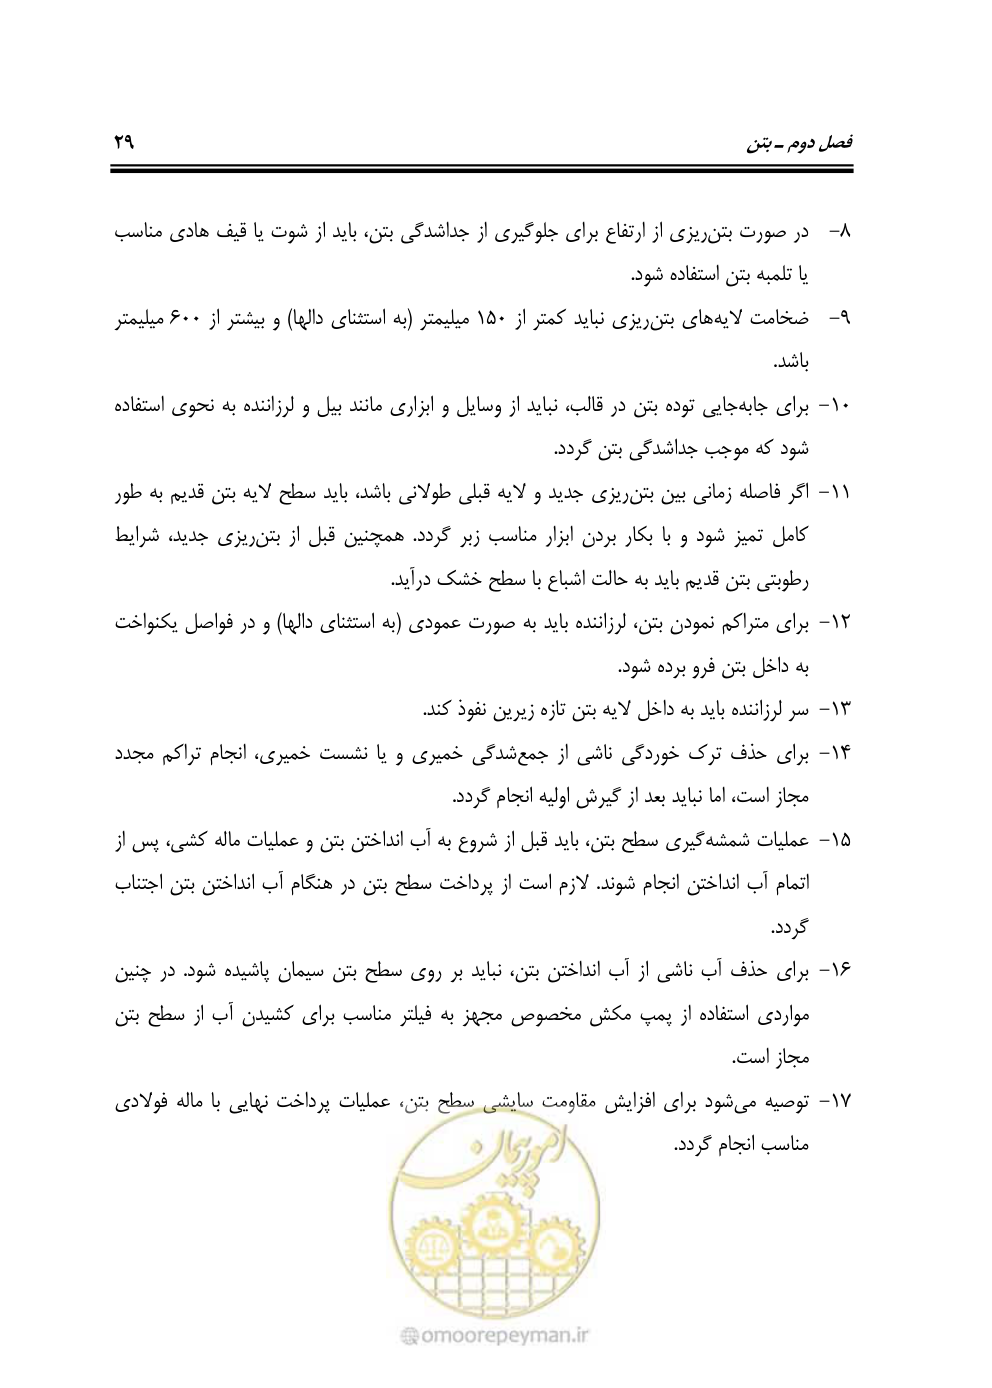 فصل دوم ـ بتن
۲۹
۸- در صورت بتن‌ریزی از ارتفاع برای جلوگیری از جداشدگی بتن، باید از شوت یا قیف هادی مناسب
یا تلمبه بتن استفاده شود.
۹- ضخامت لایه‌های بتن‌ریزی نباید کمتر از ۱۵۰ میلیمتر (به استثنای دالها) و بیشتر از ۶۰۰ میلیمتر
باشد.
۱۰- برای جابه‌جایی توده بتن در قالب، نباید از وسایل و ابزاری مانند بیل و لرزاننده به نحوی استفاده
شود که موجب جداشدگی بتن گردد.
۱۱- اگر فاصله زمانی بین بتن‌ریزی جدید و لایه قبلی طولانی باشد، باید سطح لایه بتن قدیم به طور
کامل تمیز شود و با بکار بردن ابزار مناسب زبر گردد. همچنین قبل از بتن‌ریزی جدید، شرایط
رطوبتی بتن قدیم باید به حالت اشباع با سطح خشک درآید.
۱۲- برای متراکم نمودن بتن، لرزاننده باید به صورت عمودی (به استثنای دالها) و در فواصل یکنواخت
به داخل بتن فرو برده شود.
۱۳- سر لرزاننده باید به داخل لایه بتن تازه زیرین نفوذ کند.
۱۴- برای حذف ترک خوردگی ناشی از جمع‌شدگی خمیری و یا نشست خمیری، انجام تراکم مجدد
مجاز است، اما نباید بعد از گیرش اولیه انجام گردد.
۱۵- عملیات شمشه‌گیری سطح بتن، باید قبل از شروع به آب انداختن بتن و عملیات ماله کشی، پس از
اتمام آب انداختن انجام شوند. لازم است از پرداخت سطح بتن در هنگام آب انداختن بتن اجتناب
گردد.
۱۶- برای حذف آب ناشی از آب انداختن بتن، نباید بر روی سطح بتن سیمان پاشیده شود. در چنین
مواردی استفاده از پمپ مکش مخصوص مجهز به فیلتر مناسب برای کشیدن آب از سطح بتن
مجاز است.
۱۷- توصیه می‌شود برای افزایش مقاومت سایشی سطح بتن، عملیات پرداخت نهایی با ماله فولادی
مناسب انجام گردد.
امور پیمان
@omoorepeyman.ir